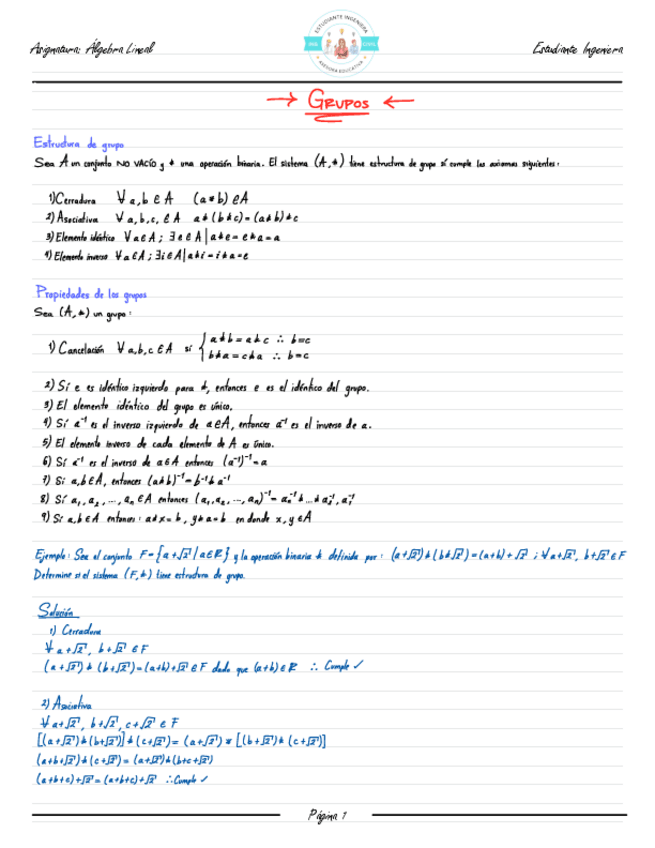 Asignatura: Álgebra Lineal
ESTUDIANTE INGENIERA
ING. CIVIL
ASESORÍA EDUCATIVA
Estudiante Ingeniera
→ GRUPOS ←
Estructura de grupo
Sea A un conjunto NO VACÍO y * una operación binaria. El sistema (A,*) tiene estructura de grupo sí cumple los axiomas siguientes:
1) Cerradura ∀ a,b ∈ A (a*b) ∈ A
2) Asociativa ∀ a,b,c, ∈ A a*(b*c)=(a*b)*c
3) Elemento idéntico ∀ a ∈ A ; ∃ e ∈ A | a*e = e*a = a
4) Elemento inverso ∀ a ∈ A ; ∃ i ∈ A | a*i = i*a = e
Propiedades de los grupos
Sea (A,*) un grupo:
1) Cancelación ∀ a,b,c ∈ A sí { a*b = a*c ∴ b=c
b*a = c*a ∴ b=c
2) Sí e es idéntico izquierdo para *, entonces e es el idéntico del grupo.
3) El elemento idéntico del grupo es único.
4) Sí a⁻¹ es el inverso izquierdo de a∈A, entonces a⁻¹ es el inverso de a.
5) El elemento inverso de cada elemento de A es único.
6) Sí a⁻¹ es el inverso de a∈A entonces (a⁻¹)⁻¹=a
7) Si a,b∈A, entonces (a*b)⁻¹=b⁻¹*a⁻¹
8) Sí a₁, a₂, ..., aₙ ∈ A entonces (a₁, a₂, ..., aₙ)⁻¹= aₙ⁻¹*...*a₂⁻¹, a₁⁻¹
9) Si a,b∈A entonces: a*x=b, y*a=b en donde x,y∈A
Ejemplo: Sea el conjunto F={a+√2 | a∈R} y la operación binaria * definida por: (a+√2)*(b+√2)=(a+b)+√2 ; ∀ a+√2, b+√2 ∈ F
Determine si el sistema (F,*) tiene estructura de grupo.
Solución
1) Cerradura
∀ a+√2, b+√2 ∈ F
(a+√2)*(b+√2)=(a+b)+√2 ∈ F dado que (a+b)∈R ∴ Cumple ✓
2) Asociativa
∀ a+√2, b+√2, c+√2 ∈ F
[(a+√2)*(b+√2)]*(c+√2)=(a+√2)*[(b+√2)*(c+√2)]
(a+b+√2)*(c+√2)=(a+√2)*(b+c+√2)
(a+b+c)+√2=(a+b+c)+√2 ∴ Cumple ✓
Página 1